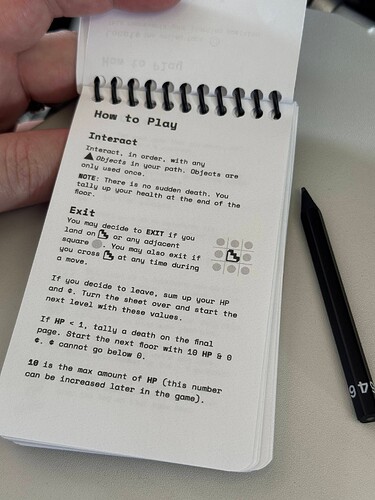 How to Play
Interact
Interact, in order, with any
▲ Objects in your path. Objects are
only used once.
NOTE: There is no sudden death. You
tally up your health at the end of the
floor.
Exit
You may decide to EXIT if you
land on or any adjacent
square . You may also exit if
you cross at any time during
a move.
If you decide to leave, sum up your HP
and ¢. Turn the sheet over and start the
next level with these values.
If HP < 1, tally a death on the final
page. Start the next floor with 10 HP & 0
¢. ¢ cannot go below 0.
10 is the max amount of HP (this number
can be increased later in the game).